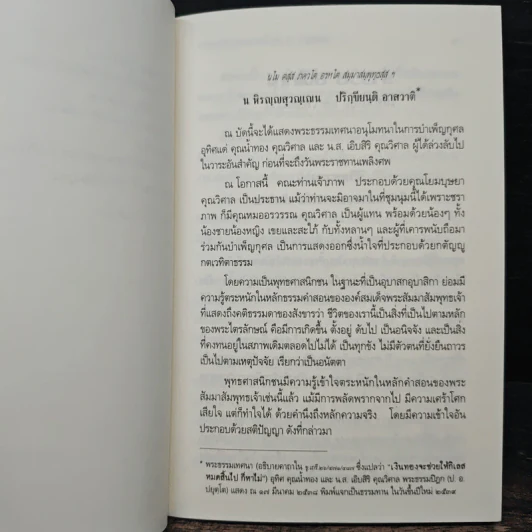 นโม ตสฺส ภควโต อรหโต สมฺมาสมฺพุทฺธสฺส ฯ
น หิรญฺญสุวณฺเณน ปริกฺขียนฺติ อาสวาติ*
ณ บัดนี้จะได้แสดงพระธรรมเทศนาอนุโมทนาในการบำเพ็ญกุศล
อุทิศแด่ คุณน้ำทอง คุณวิศาล และ น.ส. เอิบสิริ คุณวิศาล ผู้ได้ล่วงลับไป
ในวาระอันสำคัญ ก่อนที่จะถึงวันพระราชทานเพลิงศพ
ณ โอกาสนี้ คณะท่านเจ้าภาพ ประกอบด้วยคุณโยมบุษยา
คุณวิศาล เป็นประธาน แม้ว่าท่านจะมิอาจมาในที่ชุมนุมนี้ได้เพราะชรา
ภาพ ก็มีคุณหมออรวรรณ คุณวิศาล เป็นผู้แทน พร้อมด้วยน้องๆ ทั้ง
น้องชายน้องหญิง เขยและสะใภ้ กับทั้งหลานๆ และผู้ที่เคารพนับถือมา
ร่วมกันบำเพ็ญกุศล เป็นการแสดงออกซึ่งน้ำใจที่ประกอบด้วยกตัญญู
กตเวทิตาธรรม
โดยความเป็นพุทธศาสนิกชน ในฐานะที่เป็นอุบาสกอุบาสิกา ย่อมมี
ความรู้ตระหนักในหลักธรรมคำสอนขององค์สมเด็จพระสัมมาสัมพุทธเจ้า
ที่แสดงถึงคติธรรมดาของสังขารว่า ชีวิตของเรานี้เป็นสิ่งที่เป็นไปตามหลัก
ของพระไตรลักษณ์ คือมีการเกิดขึ้น ตั้งอยู่ ดับไป เป็นอนิจจัง และเป็นสิ่ง
ที่คงทนอยู่ในสภาพเดิมตลอดไปไม่ได้ เป็นทุกขัง ไม่มีตัวตนที่ยั่งยืนถาวร
เป็นไปตามเหตุปัจจัย เรียกว่าเป็นอนัตตา
พุทธศาสนิกชนมีความรู้เข้าใจตระหนักในหลักคำสอนของพระ
สัมมาสัมพุทธเจ้าเช่นนี้แล้ว แม้มีการพลัดพรากจากไป มีความเศร้าโศก
เสียใจ แต่ก็ทำใจได้ ด้วยคำนึงถึงหลักความจริง โดยมีความเข้าใจอัน
ประกอบด้วยสติปัญญา ดังที่กล่าวมา
* พระธรรมเทศนา (อธิบายคาถาใน ซึ่งแปลว่า "เงินทองจะช่วยให้กิเลส
หมดสิ้นไป ก็หาไม่") อุทิศ คุณน้ำทอง และ น.ส. เอิบสิริ คุณวิศาล พระธรรมปิฎก (ป. อ.
ปยุตฺโต) แสดง ณ ๑๗ มีนาคม ๒๕๓๘ พิมพ์แจกเป็นธรรมทาน ในวันขึ้นปีใหม่ ๒๕๓๙